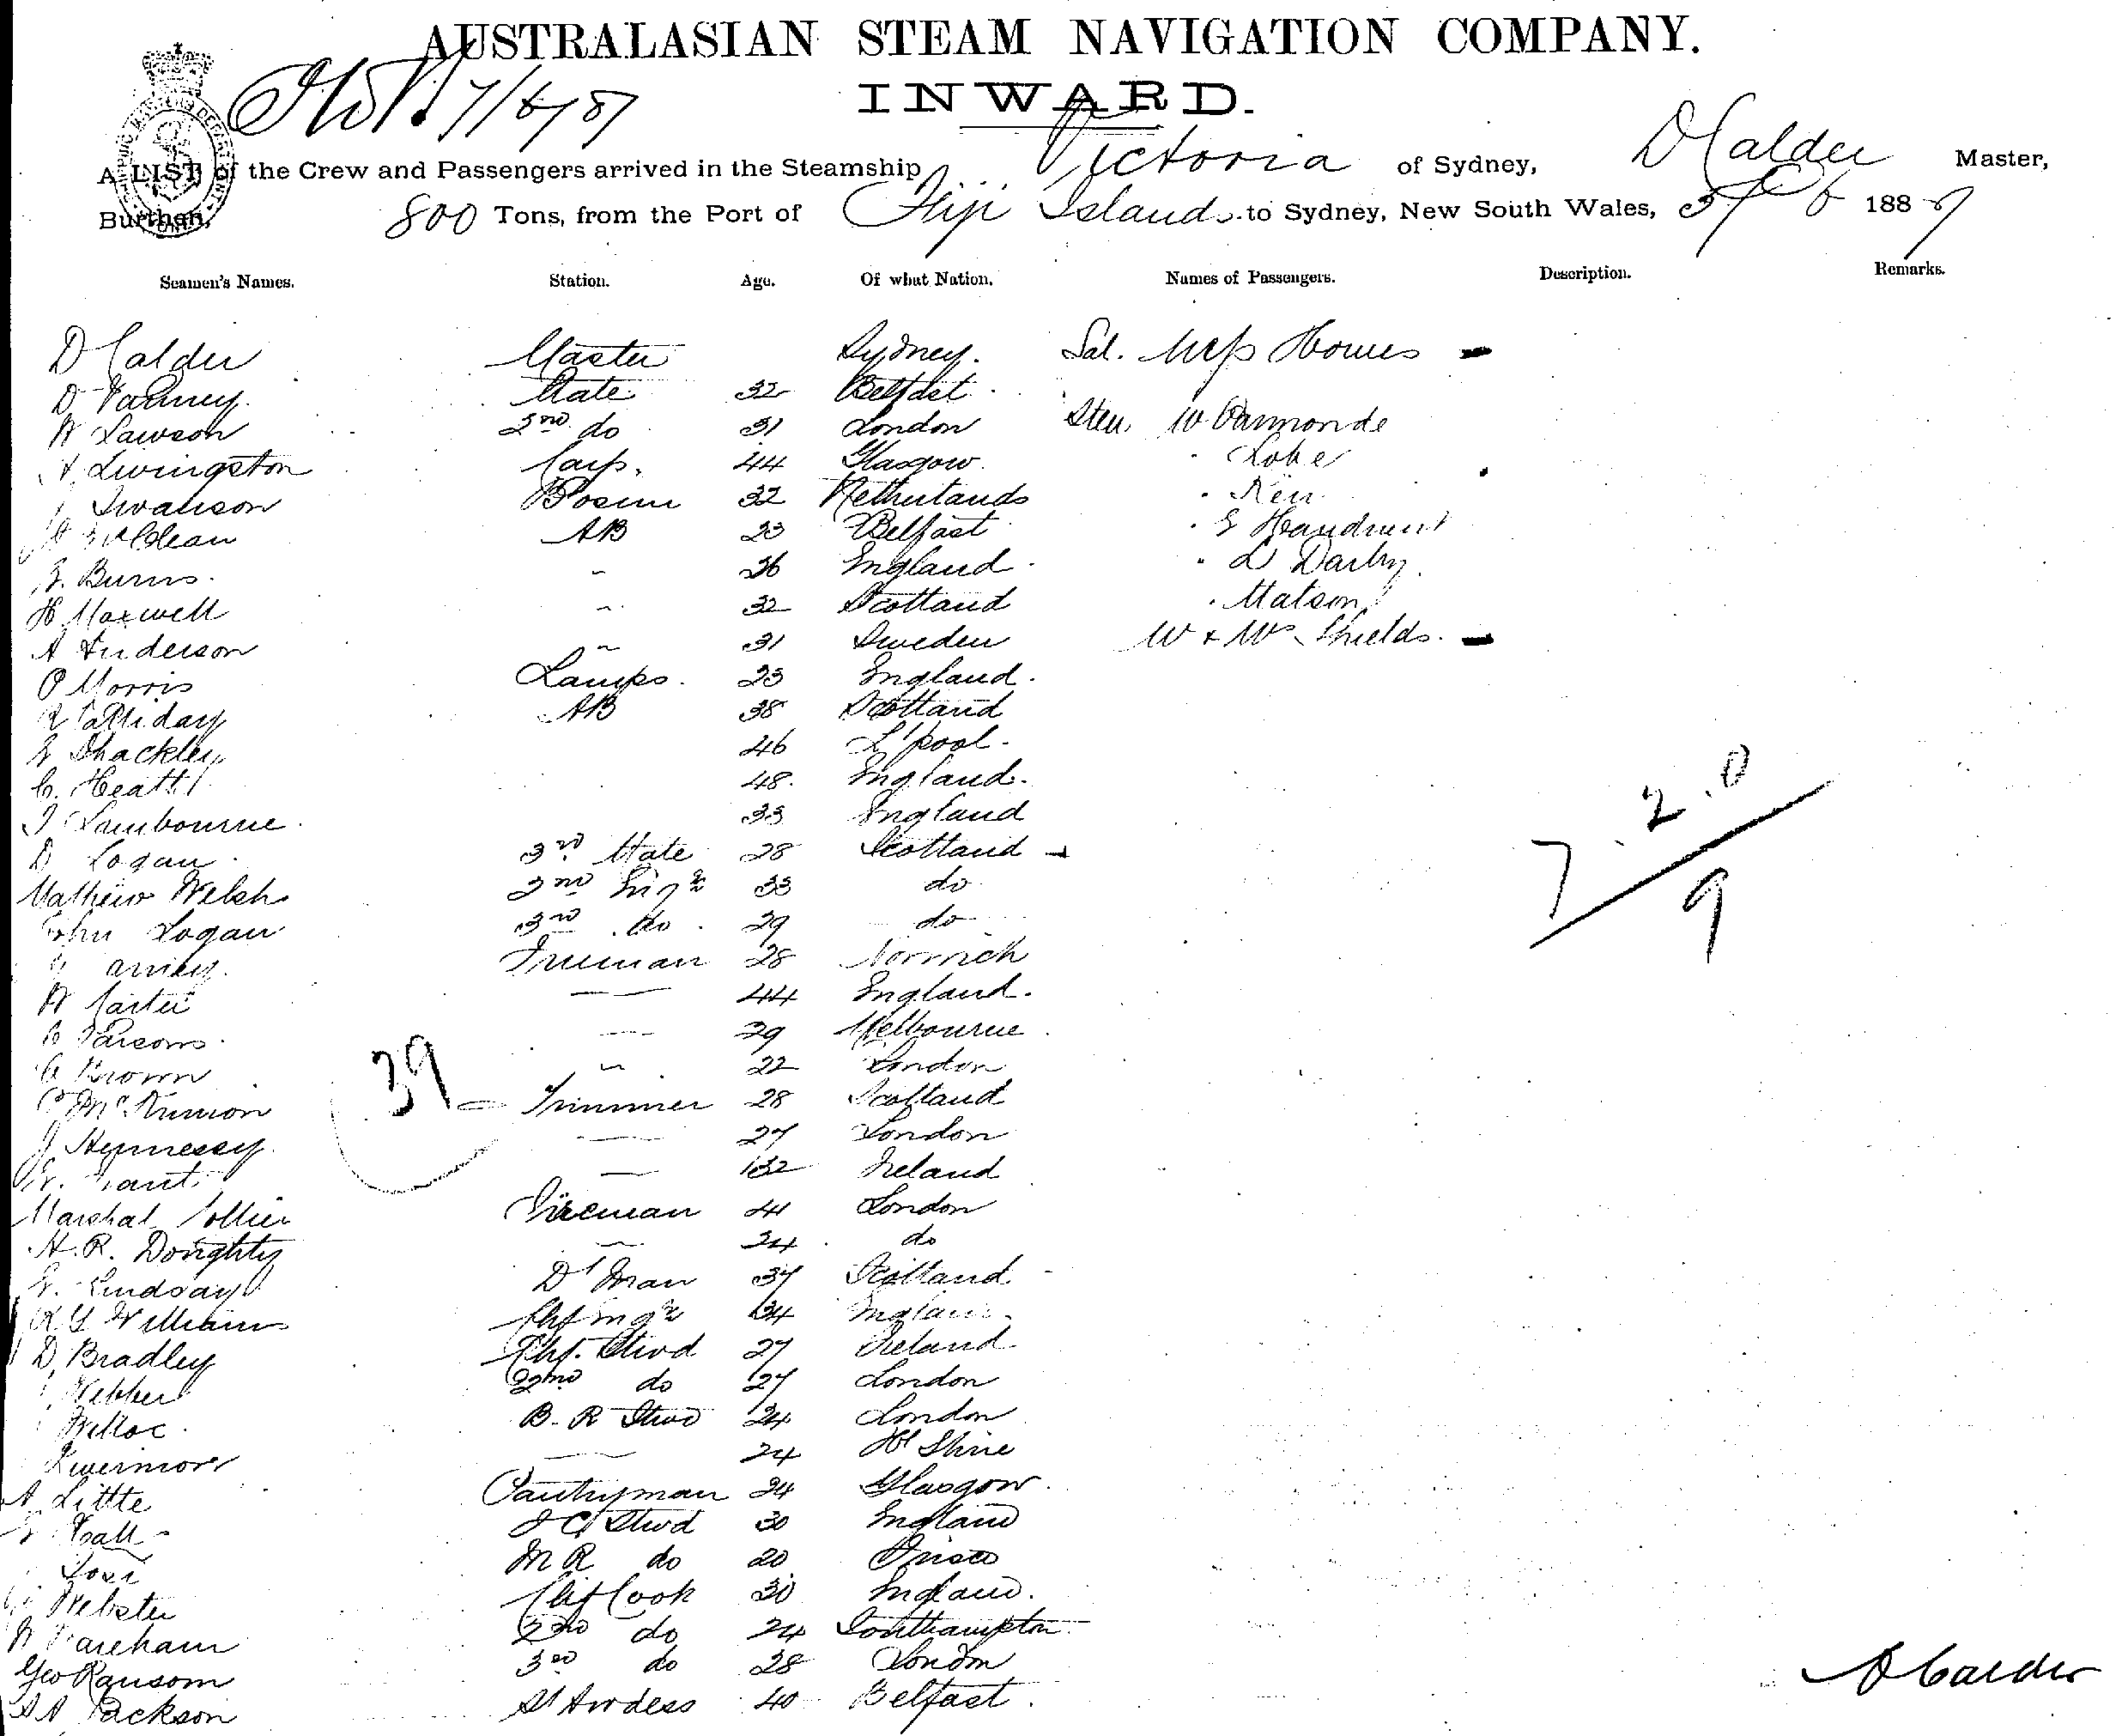 AUSTRALASIAN STEAM NAVIGATION COMPANY.
INWARD.
A LIST of the Crew and Passengers arrived in the Steamship Victoria of Sydney, D Calder Master,
Burthen, 800 Tons, from the Port of Fiji Islands to Sydney, New South Wales, 6 1887
Seamen's Names. Station. Age. Of what Nation. Names of Passengers. Description. Remarks.
D Calder Master Sydney. Sal. Howes
D Mate 32 Belfast
W Lawson 2nd do 31 London Stew W
A Livingston Carp. 44 Glasgow.
Swanson Bosun 32 Netherlands
McClean AB 23 Belfast
Burns 26 England L Darby
H Maxwell 32 Scotland Matson
A Anderson 31 Sweden W + Shields
O Morris Lamps. 23 England.
Halliday AB 38 Scotland
Shackley 46 L'pool.
Heath 48. England.
Lambourne 33 England
D Logan 3rd Mate 28 Scotland
Mathew Welsh 2nd Engr 33 do
John Logan 3rd do 29 do
Fireman 28 Norwich
W Carter 44 England.
Parsons 29 Melbourne
Brown 22 London
39 Trimmer 28 Scotland
J Hennessy 27 London
32 Ireland
Marshal Collier Fireman 41 London
H. R. Doughty 34 do
Lindsay D'man 37 Scotland
Williams Chf Engr 34
D Bradley Chf. Stwd 27 Ireland
Webber 2nd do 27 London
B. R Stwd 24 London
Livermore 24
A Little Pantryman 24 Glasgow
Hall Stwd 30 England
M R do 20
Webster Chf Cook 30 England.
W Wareham 2nd do 24 Southampton
Geo Ransom 3rd do 28 London
Jackson Stwdess 40 Belfast.
7 2.0
9
D Calder